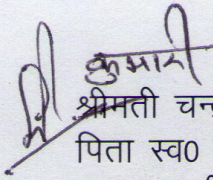 कुमारी
श्रीमती चन्
पिता स्व0